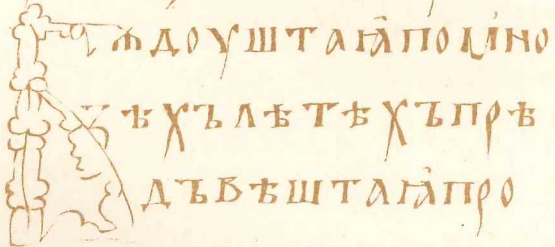 Бѫдоуштаꙗпомно
ꙃѣхълѣтѣхъпрѣ
дъвѣштаꙗпро